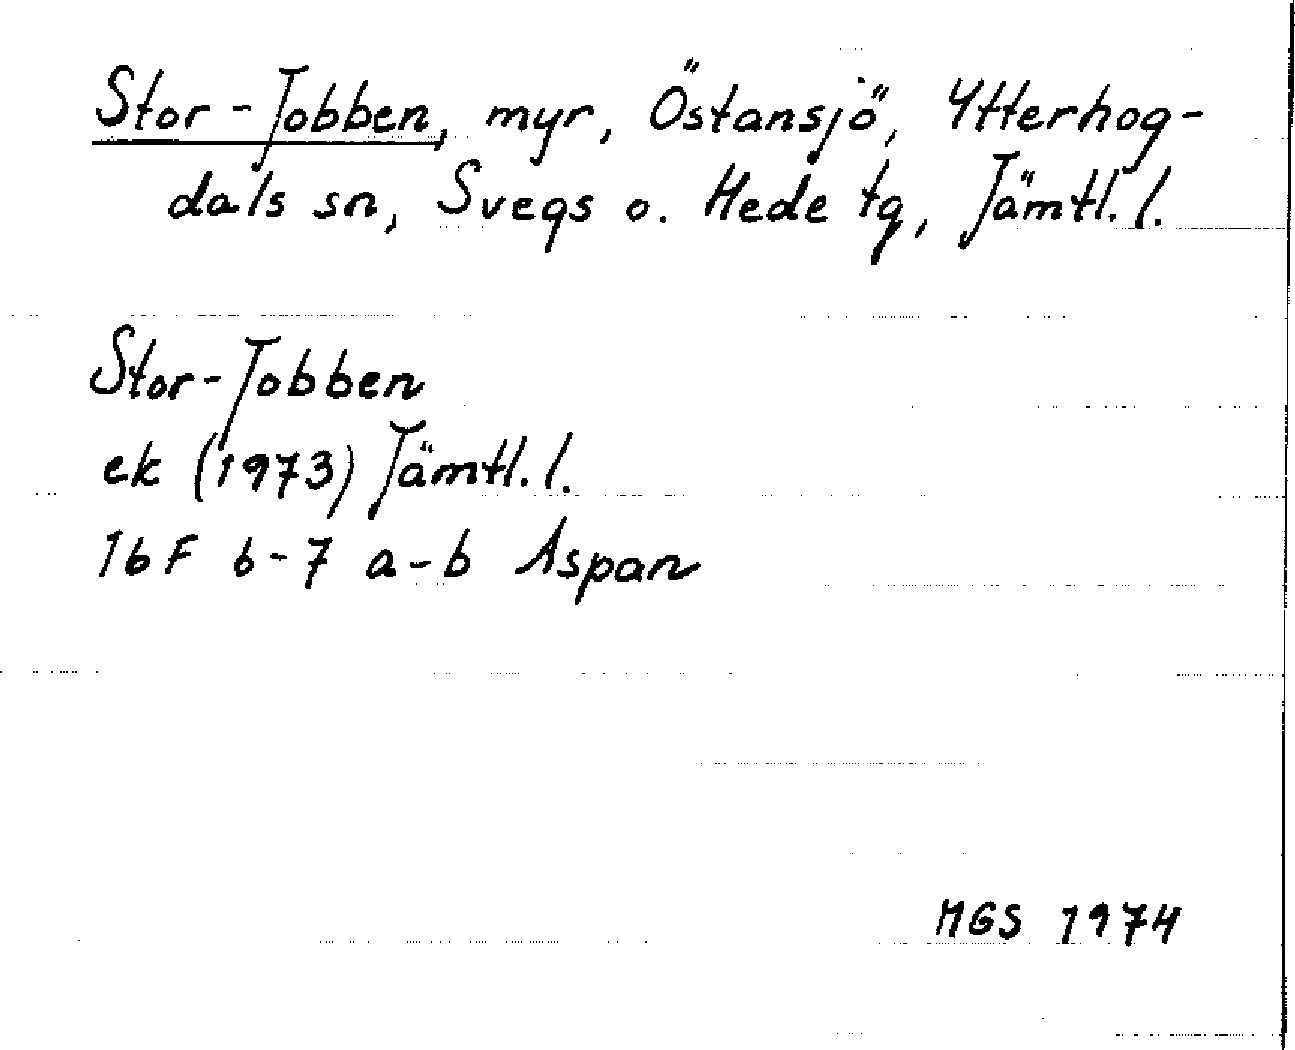 Stor-Jobben, myr, Östansjö, Ytterhog-
dals sn, Svegs o. Hede tg, Jämtl. l.
Stor-Jobben
ek (1973) Jämtl. l.
16F 6-7 a-b Aspan
MGS 1974